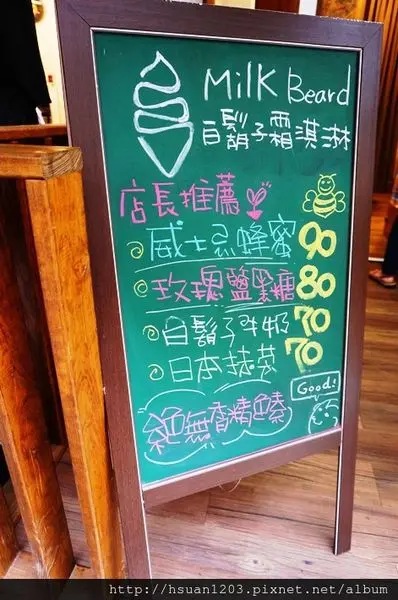 Milk Beard
白鬍子霜淇淋
店長推薦
威士忌蜂蜜 90
玫瑰鹽黑糖 80
白鬍子牛奶 70
日本抹茶 70
Good!
絕無香精色素
http://hsuan1203.pixnet.net/album